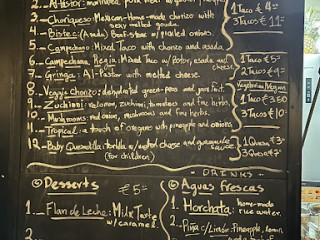 2._ Al-Pastor: marinated pork meat
3._ Choriqueso: Mexican-Home-made chorizo with very melted gouda.
1 Taco €4=
3 Tacos €11=
4._ Bistec: (Asada) Beef-steak w/ pickled onions.
5._ Campechano: Mixed Taco with chorizo and asada
6._ Campechana Regia: Mixed Taco w/ pastor, asada and cheese
1 Taco €5=
7._ Gringa: Al-Pastor with melted cheese.
2 Tacos €9=
8._ Veggie Chorizo: dehydrated green-peas and
9._ Zuchinni: tomatoes and fine herbs.
1 Taco €3.50
10._ Mushrooms: red onion, mushrooms and fine herbs.
3 Tacos €10=
11._ Tropical: a touch of oregano with pineapple and onions
12._ Baby Quesadilla: tortilla w/ melted cheese and guacamole sauce
(for children)
1 Queka €3=
- DRINKS -
Desserts
€5=
Aguas frescas
1._ Flan de Leche: Milk Tarte w/ caramel.
1. Horchata: home-made rice water.
2. Piña c/ Limón: Pineapple, lemon